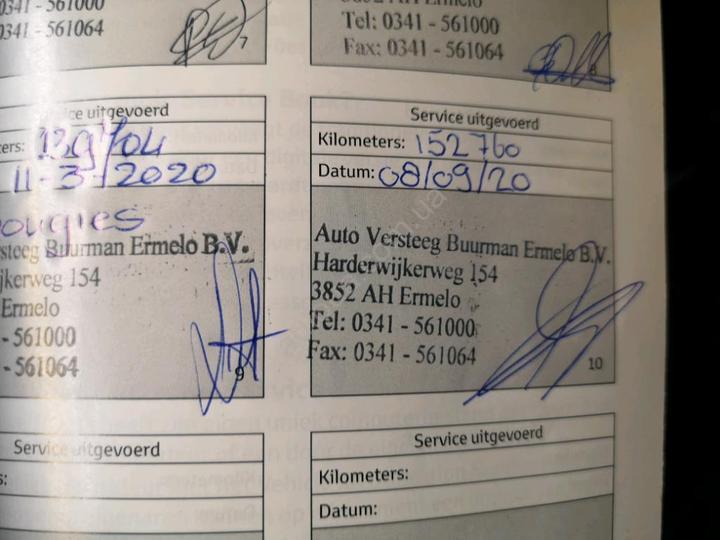 0341 - 561000
0341 - 561064
7
3852 AH Ermelo
Tel: 0341 - 561000
Fax: 0341 - 561064
ce uitgevoerd
ers:
11-3-/2020
ougies
steeg Buurman Ermelo B.V.
jkerweg 154
Ermelo
- 561000
- 561064
9
Service uitgevoerd
Kilometers: 152760
Datum: 08/09/20
Auto Versteeg Buurman Ermelo B.V.
Harderwijkerweg 154
3852 AH Ermelo
Tel: 0341 - 561000
Fax: 0341 - 561064
10
Service uitgevoerd
s:
Service uitgevoerd
Kilometers:
Datum: